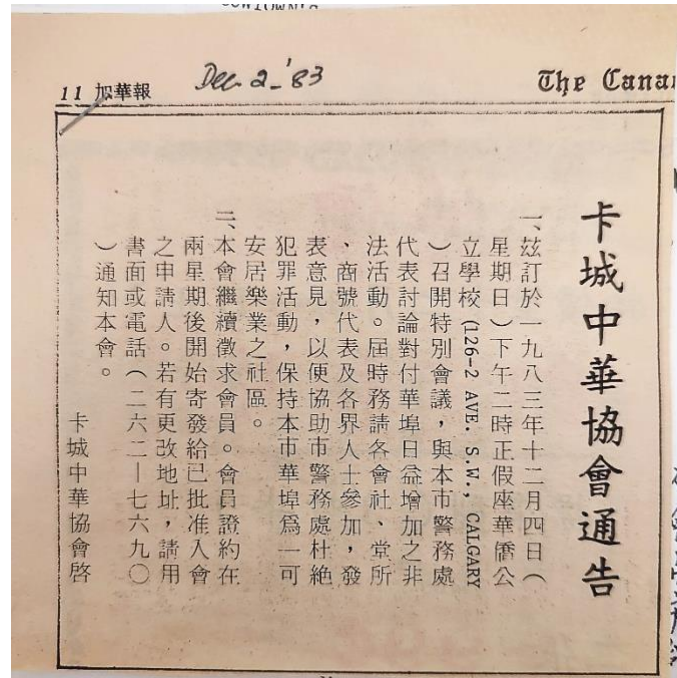 11 加華報
Dec. 2 - '83
The Cana
卡城中華協會通告
一、玆訂於一九八三年十二月四日（
星期日）下午二時正假座華僑公
立學校 (126-2 AVE., S.W., CALGARY
）召開特別會議，與本市警務處
代表討論對付華埠日益增加之非
法活動。屆時務請各會社、堂所
、商號代表及各界人士參加，發
表意見，以便協助市警務處杜絶
犯罪活動，保持本市華埠爲一可
安居樂業之社區。
二、本會繼續徵求會員。會員證約在
兩星期後開始寄發給已批准入會
之申請人。若有更改地址，請用
書面或電話（二六二—七六九〇
）通知本會。
卡城中華協會啓